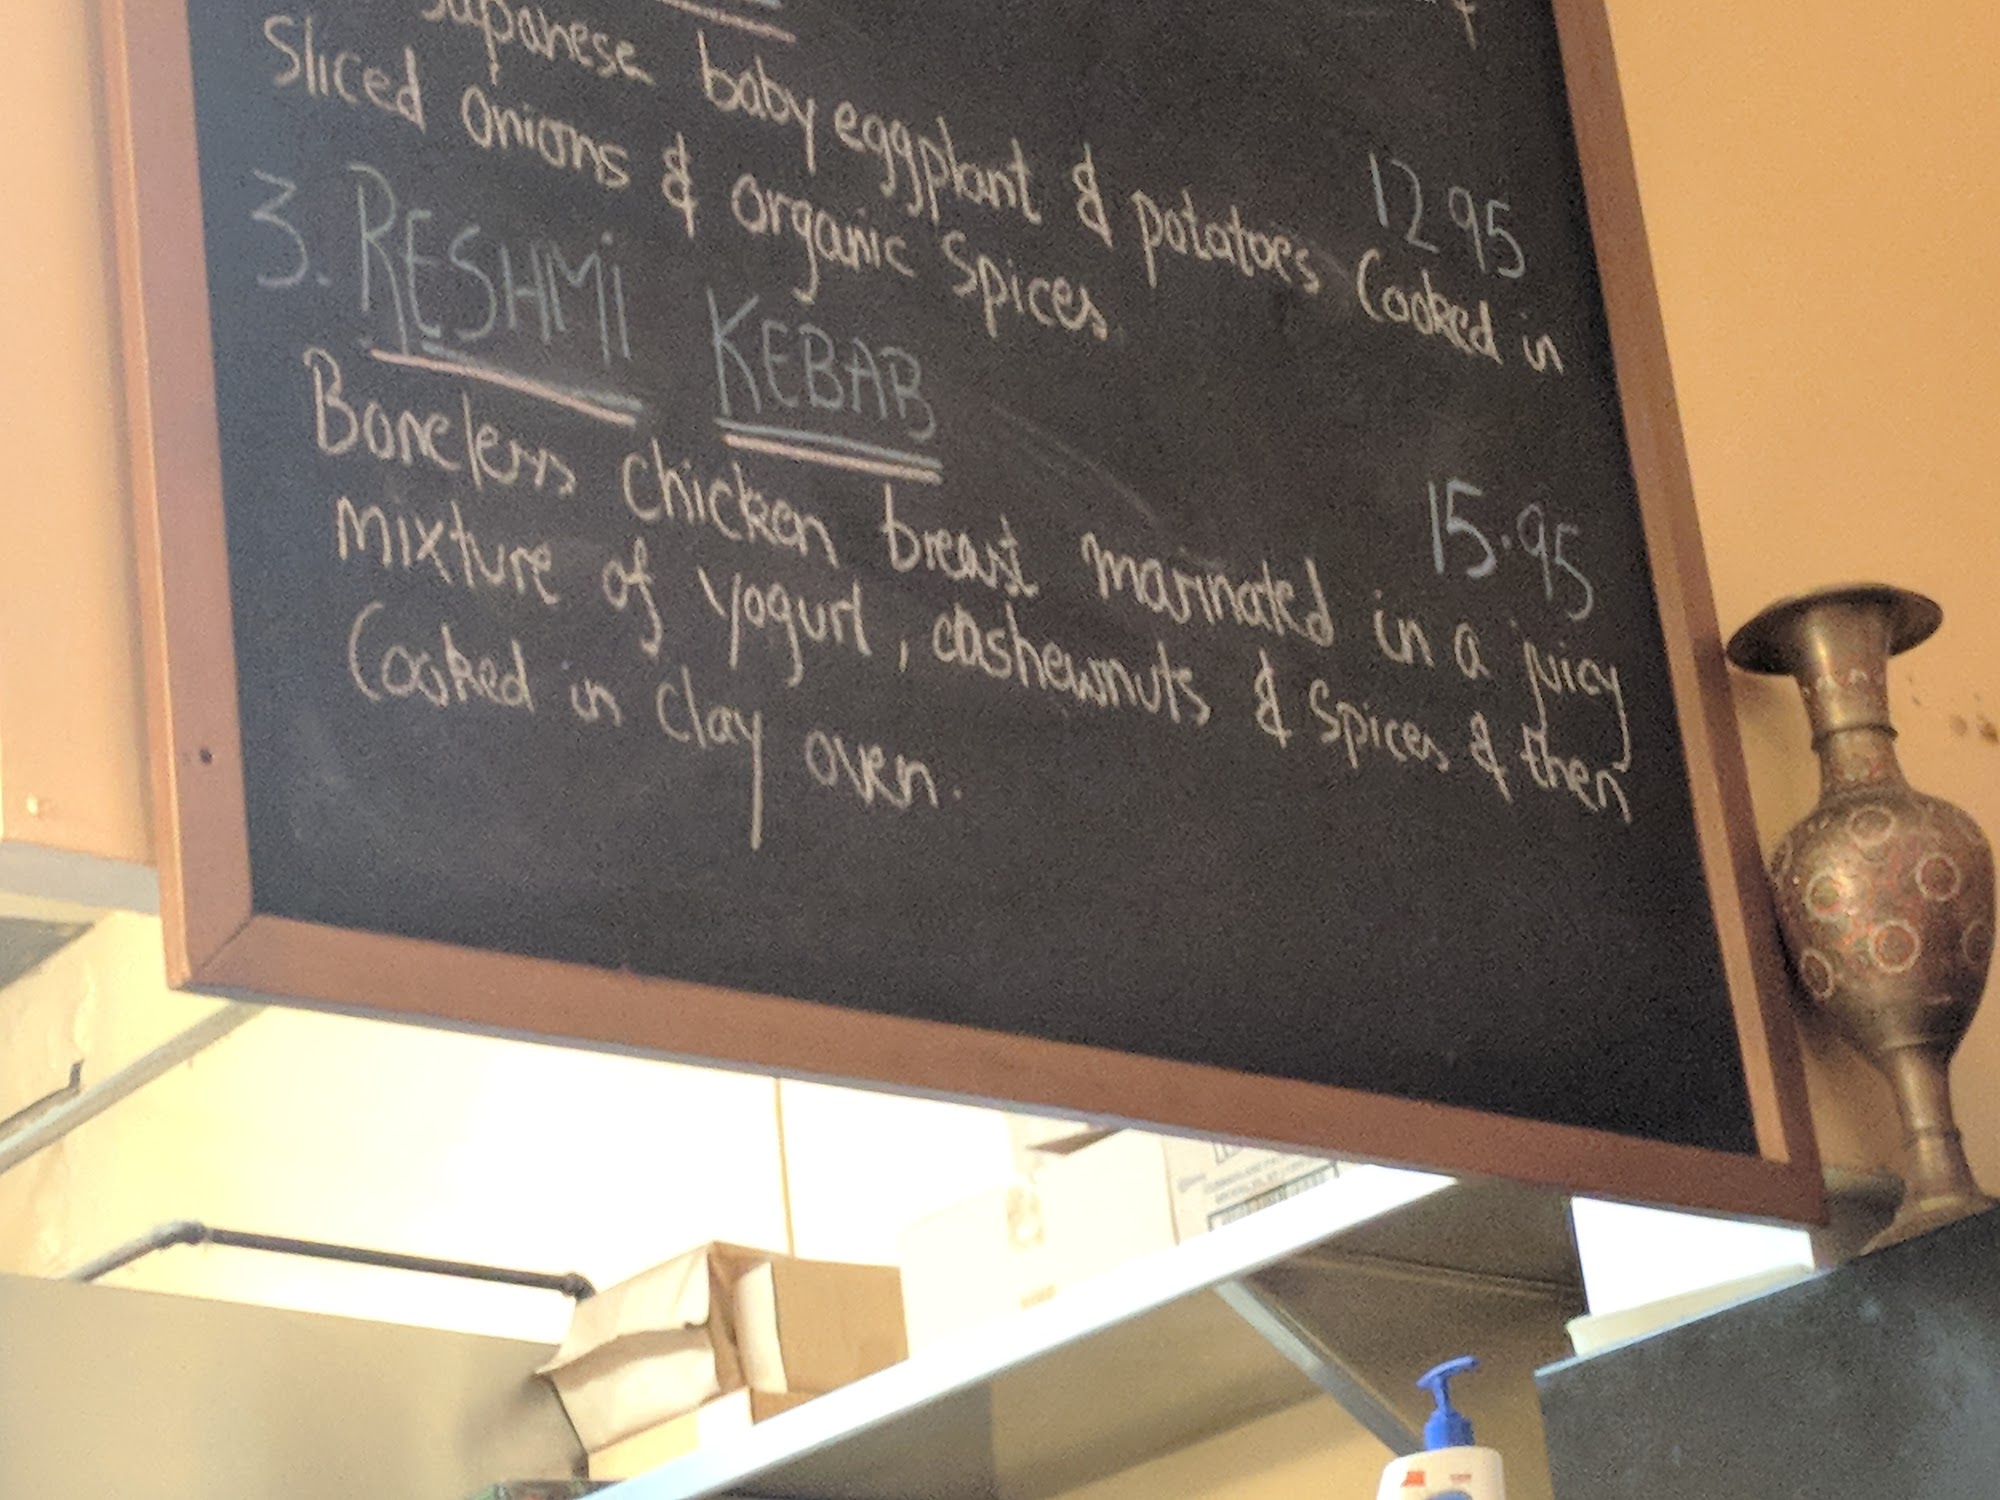 Japanese baby eggplant & potatoes Cooked in 12 95
Sliced onions & organic spices
3. RESHMi KEBAB 15.95
Boneless chicken breast marinated in a juicy
mixture of yogurt, cashewnuts & spices & then
Cooked in clay oven.